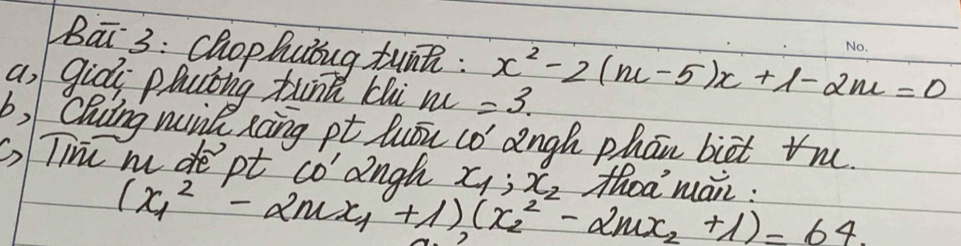 No.
Bài 3: Cho phương trình: x² - 2(m-5)x + 1 - 2m = 0
a, Giải phương trình khi m = 3.
b, Chứng minh rằng pt luôn có 2ngh phân biệt ∀m.
c, Tìm m để pt có 2ngh x₁; x₂ thoả mãn:
(x₁² - 2mx₁ + 1).(x₂² - 2mx₂ + 1) = 64.